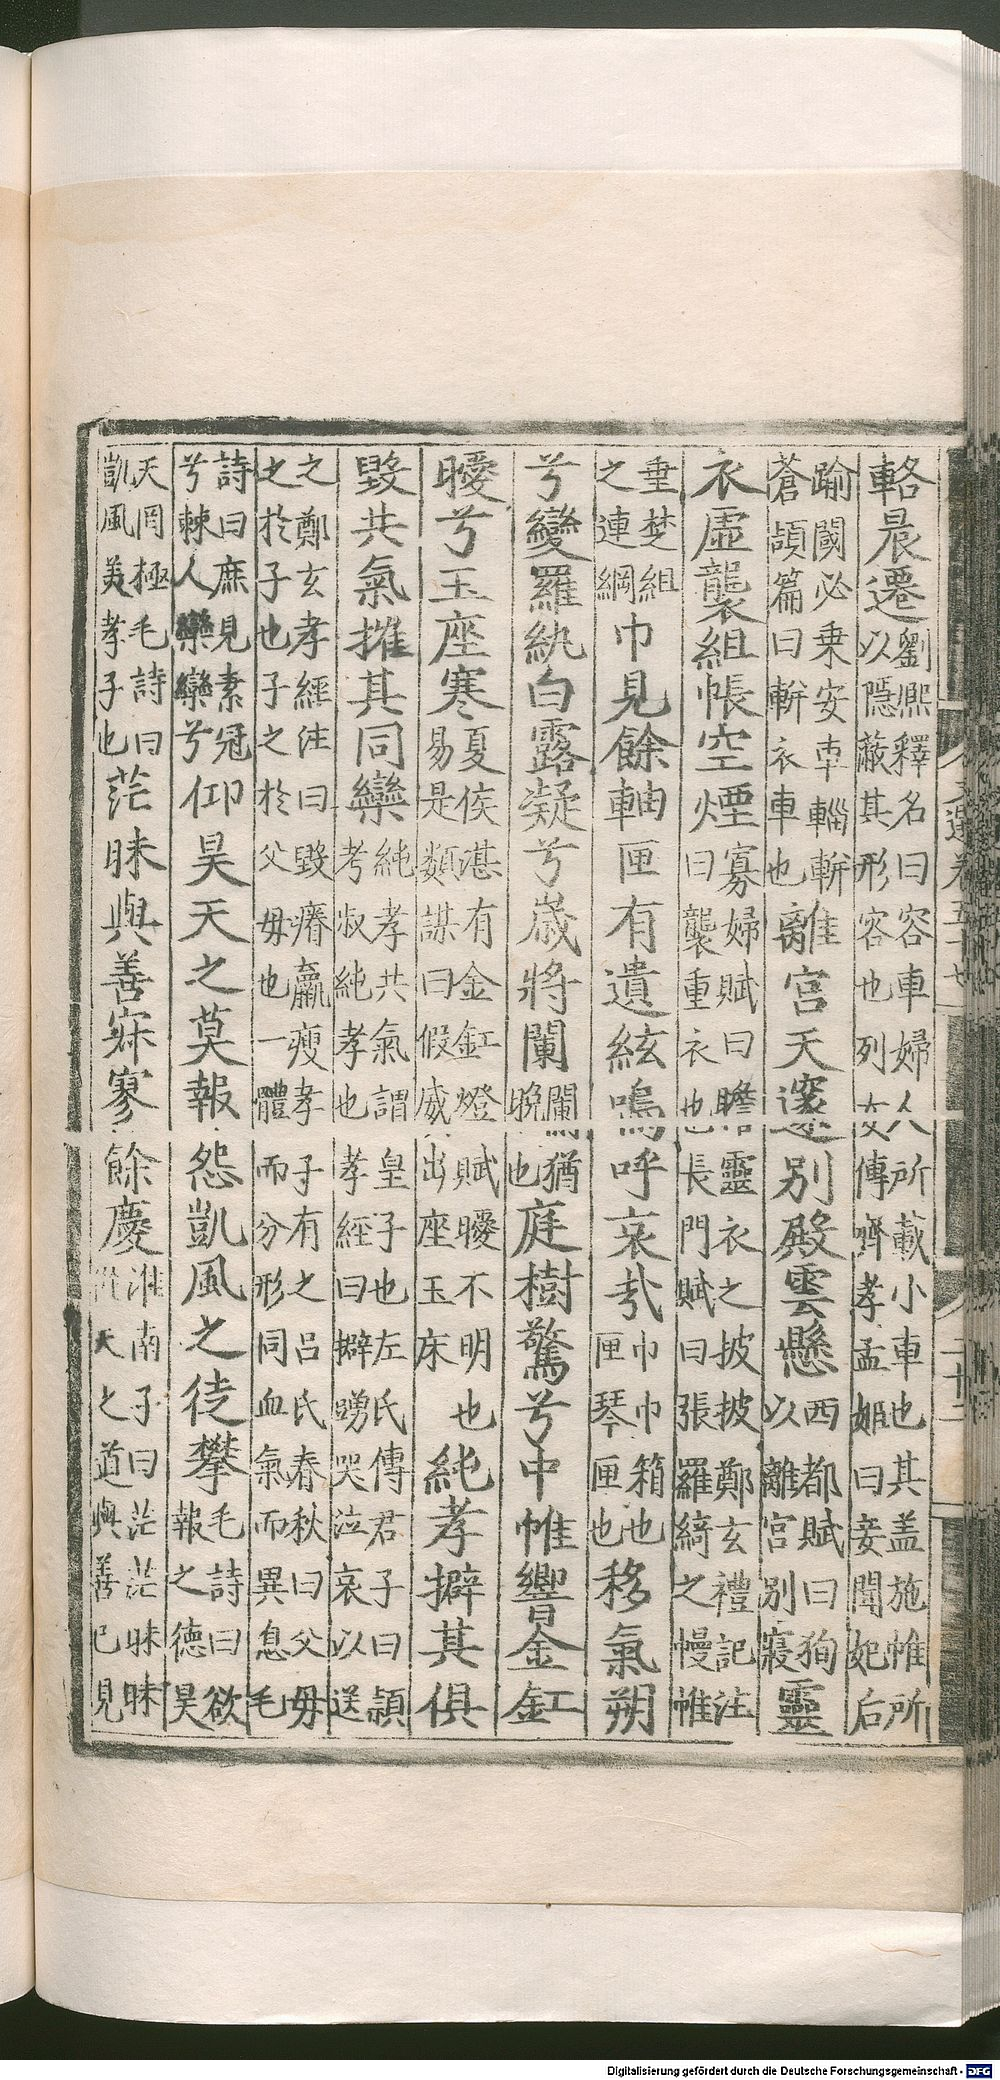 輅晨遷劉熙釋名曰容車婦人所載小車也其盖施帷所以隱蔽其形容也列女傳齊孝孟姬曰妾聞妃后
踰閾必乗安車輜軿蒼頡篇曰軿衣車也離宮天邃別殿雲懸西都賦曰狥以離宮別寢靈
衣虚襲組帳空煙寡婦賦曰瞻靈衣之披披鄭玄禮記注曰襲重衣也長門賦曰張羅綺之幔帷
垂楚組之連綱巾見餘軸匣有遺絃嗚呼哀㢤巾巾箱也匣琴匣也移氣朔
兮變羅紈白露凝兮歲將闌闌猶晩也庭樹驚兮中帷響金釭
曖兮玉座寒夏侯湛有金釭燈賦曖不明也易是類謀曰假威出座玉床純孝擗其俱
毀共氣摧其同欒純孝共氣謂皇子也左氏傳君子曰頴考叔純孝也孝經曰擗踴哭泣哀以送
之鄭玄孝經注曰毀瘠羸瘦孝子有之吕氏春秋曰父母之於子也子之於父母也一體而分形同血氣而異息毛
詩曰庶見素冠兮棘人欒欒兮仰昊天之莫報怨凱風之徒攀毛詩曰欲報之德昊
天罔極毛詩曰凱風美孝子也茫昧與善寂寥餘慶淮南子曰茫茫昧昧從天之道與善已見
Digitalisierung gefördert durch die Deutsche Forschungsgemeinschaft - DFG